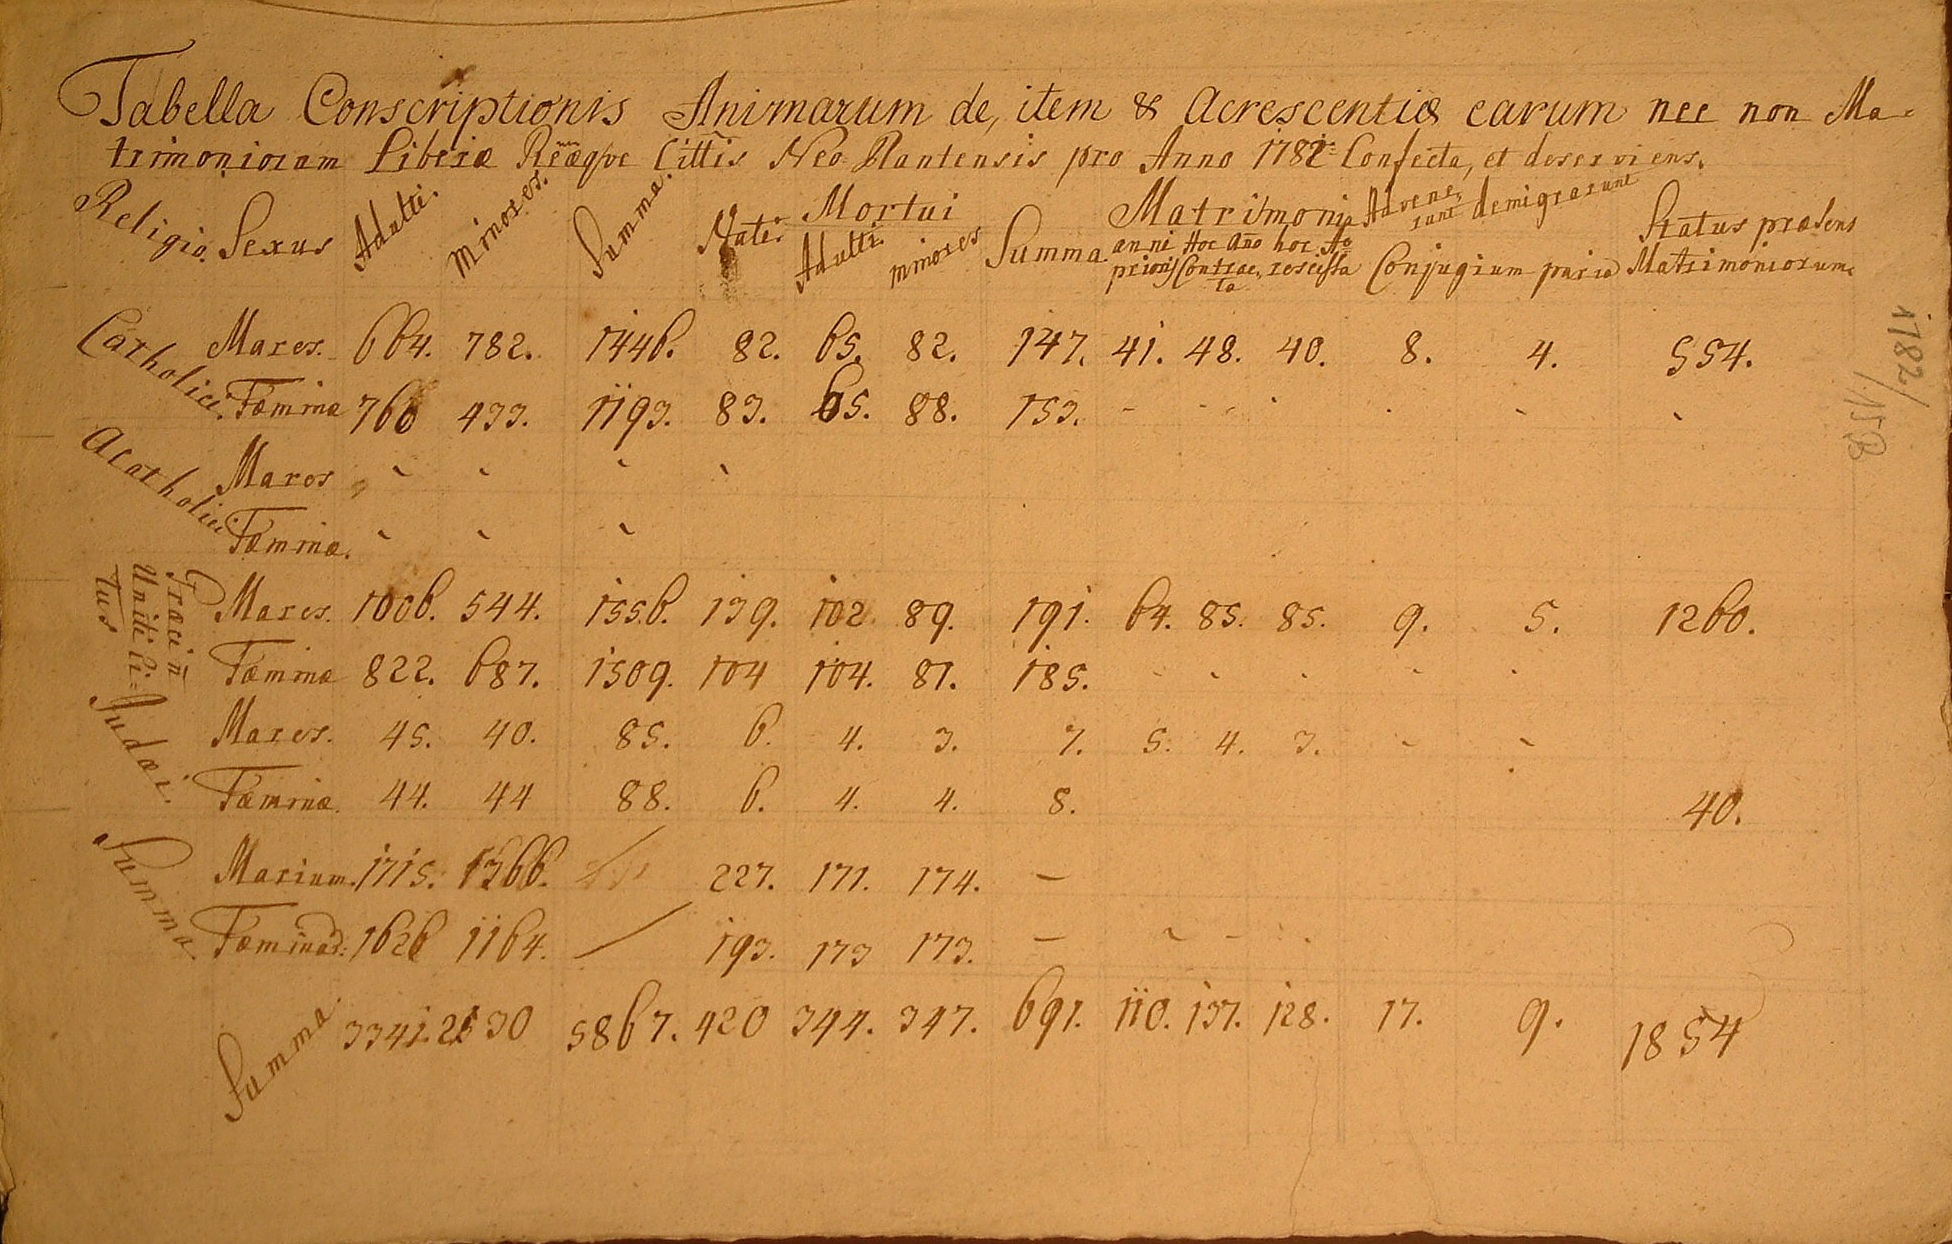 Tabella Conscriptionis Animarum de, item & Acrescentiæ earum nec non Ma-
trimoniorum Liberæ Reæqve Cittis Neo Plantensis pro Anno 1782 Confecta, et deserviens.
Religio. Sexus Adulti. Minores. Summa. Nati. Mortui Adulti. minores Summa. Matrimonia anni prioris Hoc Año Contracta hoc Ao rescissa Advenerunt demigrarunt Conjugium paria Status præsens Matrimoniorum.
Catholici. Mares. 664. 782. 1446. 82. 65. 82. 147. 41. 48. 40. 8. 4. 554.
Fæminæ 760 433. 1193. 83. 65. 88. 153. - - - - - -
Acatholici. Mares - - - -
Fæminæ. - - -
Græci ñ Uniti Ri=tus Mares. 1006. 544. 1556. 139. 102. 89. 191. 64. 85. 85. 9. 5. 1260.
Fæminæ 822. 687. 1509. 104 104. 81. 185. - - - - -
Judæi. Mares. 45. 40. 85. 6. 4. 3. 7. 5. 4. 3. - -
Fæminæ. 44. 44 88. 6. 4. 4. 8. 40.
Summa Marium. 1715. 1366. 227. 171. 174. —
Fæminar: 1626 1164. 193. 173 173. — - - -
Summa 3341. 2530 5867. 420 344. 347. 691. 110. 137. 128. 17. 9. 1854
1782/